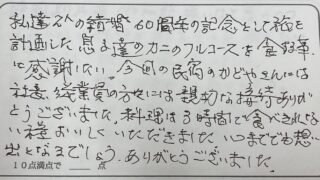 私達夫婦の結婚60周年の記念として旅を
計画した息子達のカニのフルコースを食する事
に感謝したい。今回の民宿のかどやさんには
社長 従業員の方々には親切な接待ありが
とうございました。料理は3時間でも食べきれな
い程おいしくいただきました いつまでも想い
出となるでしょう。ありがとうございました。
10点満点で 点